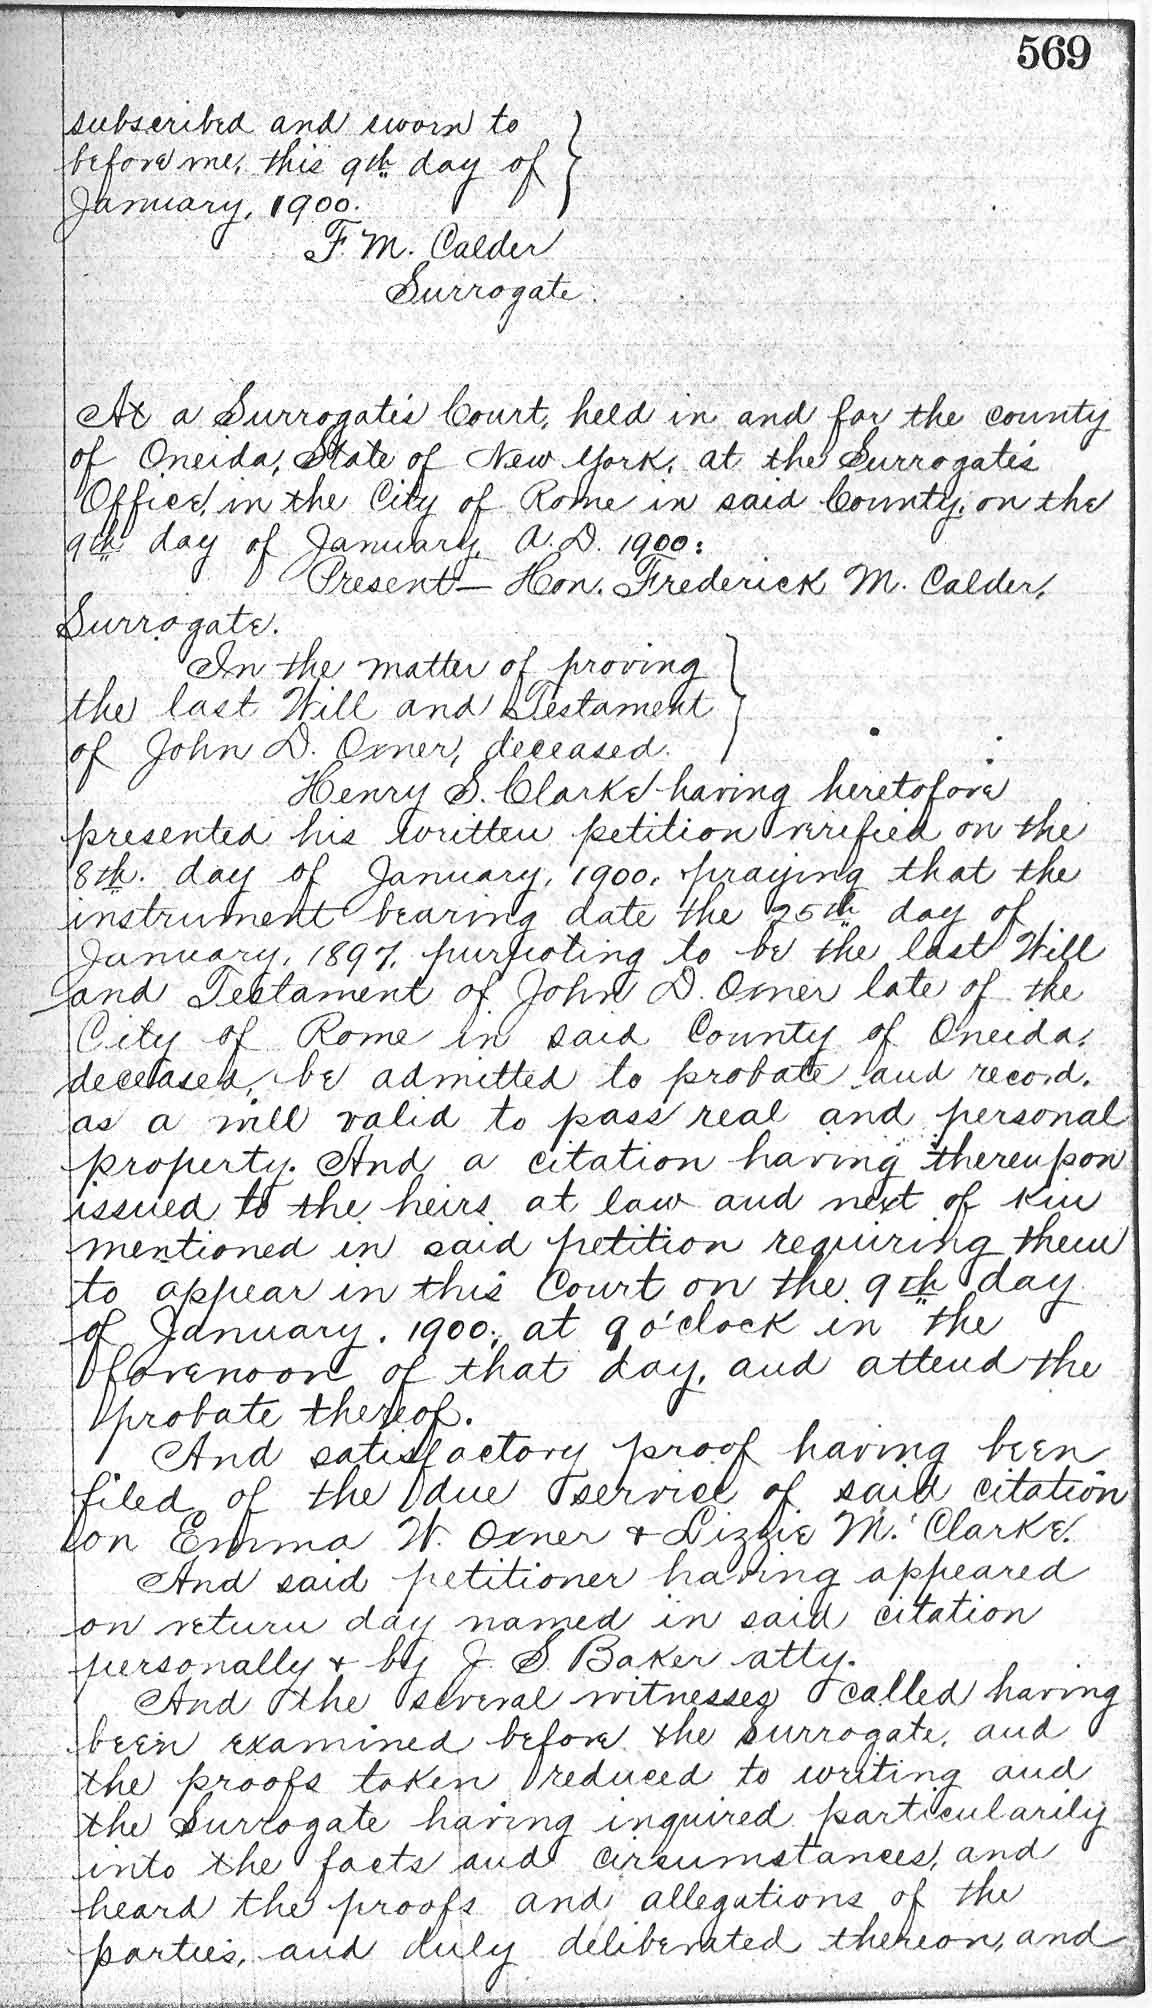 569
subscribed and sworn to
before me, this 9th day of
January, 1900.
F. M. Calder
Surrogate.
At a Surrogate's Court, held in and for the county
of Oneida, State of New York, at the Surrogate's
Office, in the City of Rome in said County, on the
9th day of January, A.D. 1900:
Present— Hon. Frederick M. Calder,
Surrogate.
In the matter of proving
the last Will and Testament
of John D. Oxner, deceased.
Henry S. Clarke having heretofore
presented his written petition verified on the
8th. day of January, 1900, praying that the
instrument bearing date the 25th day of
January, 1897, purpoting to be the last Will
and Testament of John D. Oxner late of the
City of Rome in said County of Oneida,
deceased, be admitted to probate and record,
as a will valid to pass real and personal
property. And a citation having thereupon
issued to the heirs at law and next of kin
mentioned in said petition requiring them
to appear in this Court on the 9th day
of January, 1900, at 9 o'clock in the
forenoon of that day, and attend the
probate thereof.
And satisfactory proof having been
filed of the due service of said citation
on Emma W. Oxner & Lizzie M. Clarke.
And said petitioner having appeared
on return day named in said citation
personally & by J. S. Baker atty.
And the several witnesses called having
been examined before the surrogate, and
the proofs taken reduced to writing and
the Surrogate having inquired particularily
into the facts and circumstances, and
heard the proofs and allegations of the
parties, and duly deliberated thereon, and